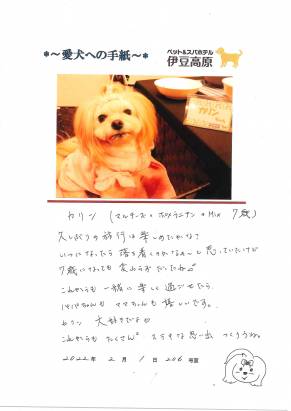 *～愛犬への手紙～*
ペット&スパホテル
伊豆高原
カリン
カリン (マルチーズ & ポメラニアン のMix 7歳)
久しぶりの旅行は楽しめたかな?
いつになったら落ち着くのかな〜と思っていたけど
7歳になっても変わらずだったね
これからも一緒に楽しく過ごせたら
パパちゃんも ママちゃんも嬉しいです。
カリン 大好きだよ
これからもたくさん ステキな思い出 つくろうね。
2022年 2月 1日 206号室